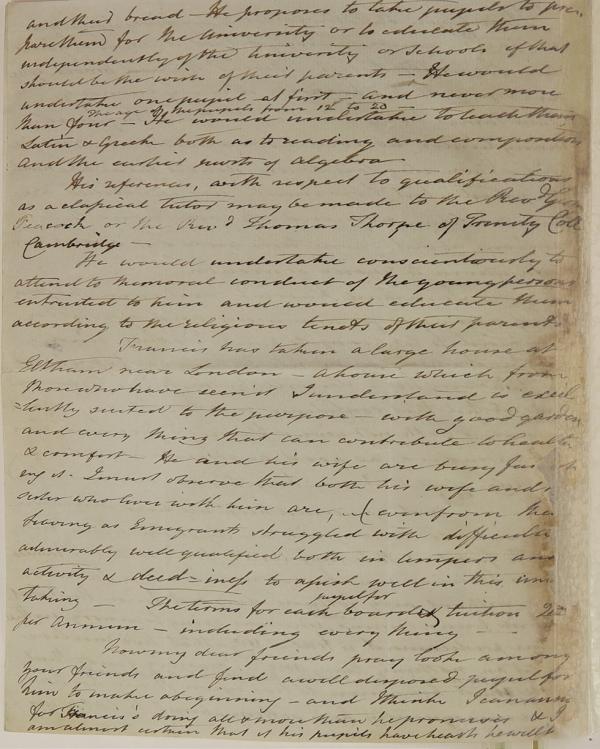 and their bread – He proposes to take pupils to pre-
pare them for the University or to educate them
independently of the University or Schools if that
should be the wish of their parents – He would
undertake one pupil at first – and never more
The age of the pupils from 12 to 20
than four – He would undertake to teach them
Latin & Greek both as to reading and composition
and the earlier parts of algebra
His reference, with respect to qualifications
as a classical tutor may be made to the Revd
Peacock or the Revd Thomas Thorpe of Trinity Coll
Cambridge –
He would undertake conscientiously to
attend to the moral conduct of the young persons
entrusted to him and would educate them
according to the religious tenets of their parents
Francis has taken a large house at
Eltham near London – a house which from
those who have seen it I understand is excel
=lently suited to the purpose – with good garden
and every thing that can contribute to health
& comfort – He and his wife are busy
it – I must observe that both his wife and
sister who lives with him are, even from their
having as Emigrants struggled with difficulties
admirably well qualified both in tempers and
activity & deed=iness to assist well in this under
taking – The terms for each pupil for board & tuition
per Annum – including every thing –
Now my dear friends pray look among
your friends and find a well disposed pupil for
him to make a beginning – and I think I can answer
for Francis's doing all & more than he promises & I
am almost certain that if his pupils have hearts he will